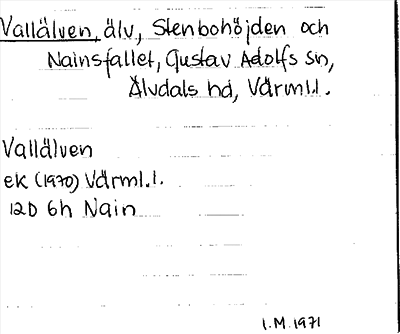 Vallälven, älv, Stenbohöjden och
Nainsfallet, Gustav Adolfs sn,
Älvdals hd, Värml.l.
Vallälven
ek (1970) Värml.l.
12D 6h Nain
I.M. 1971